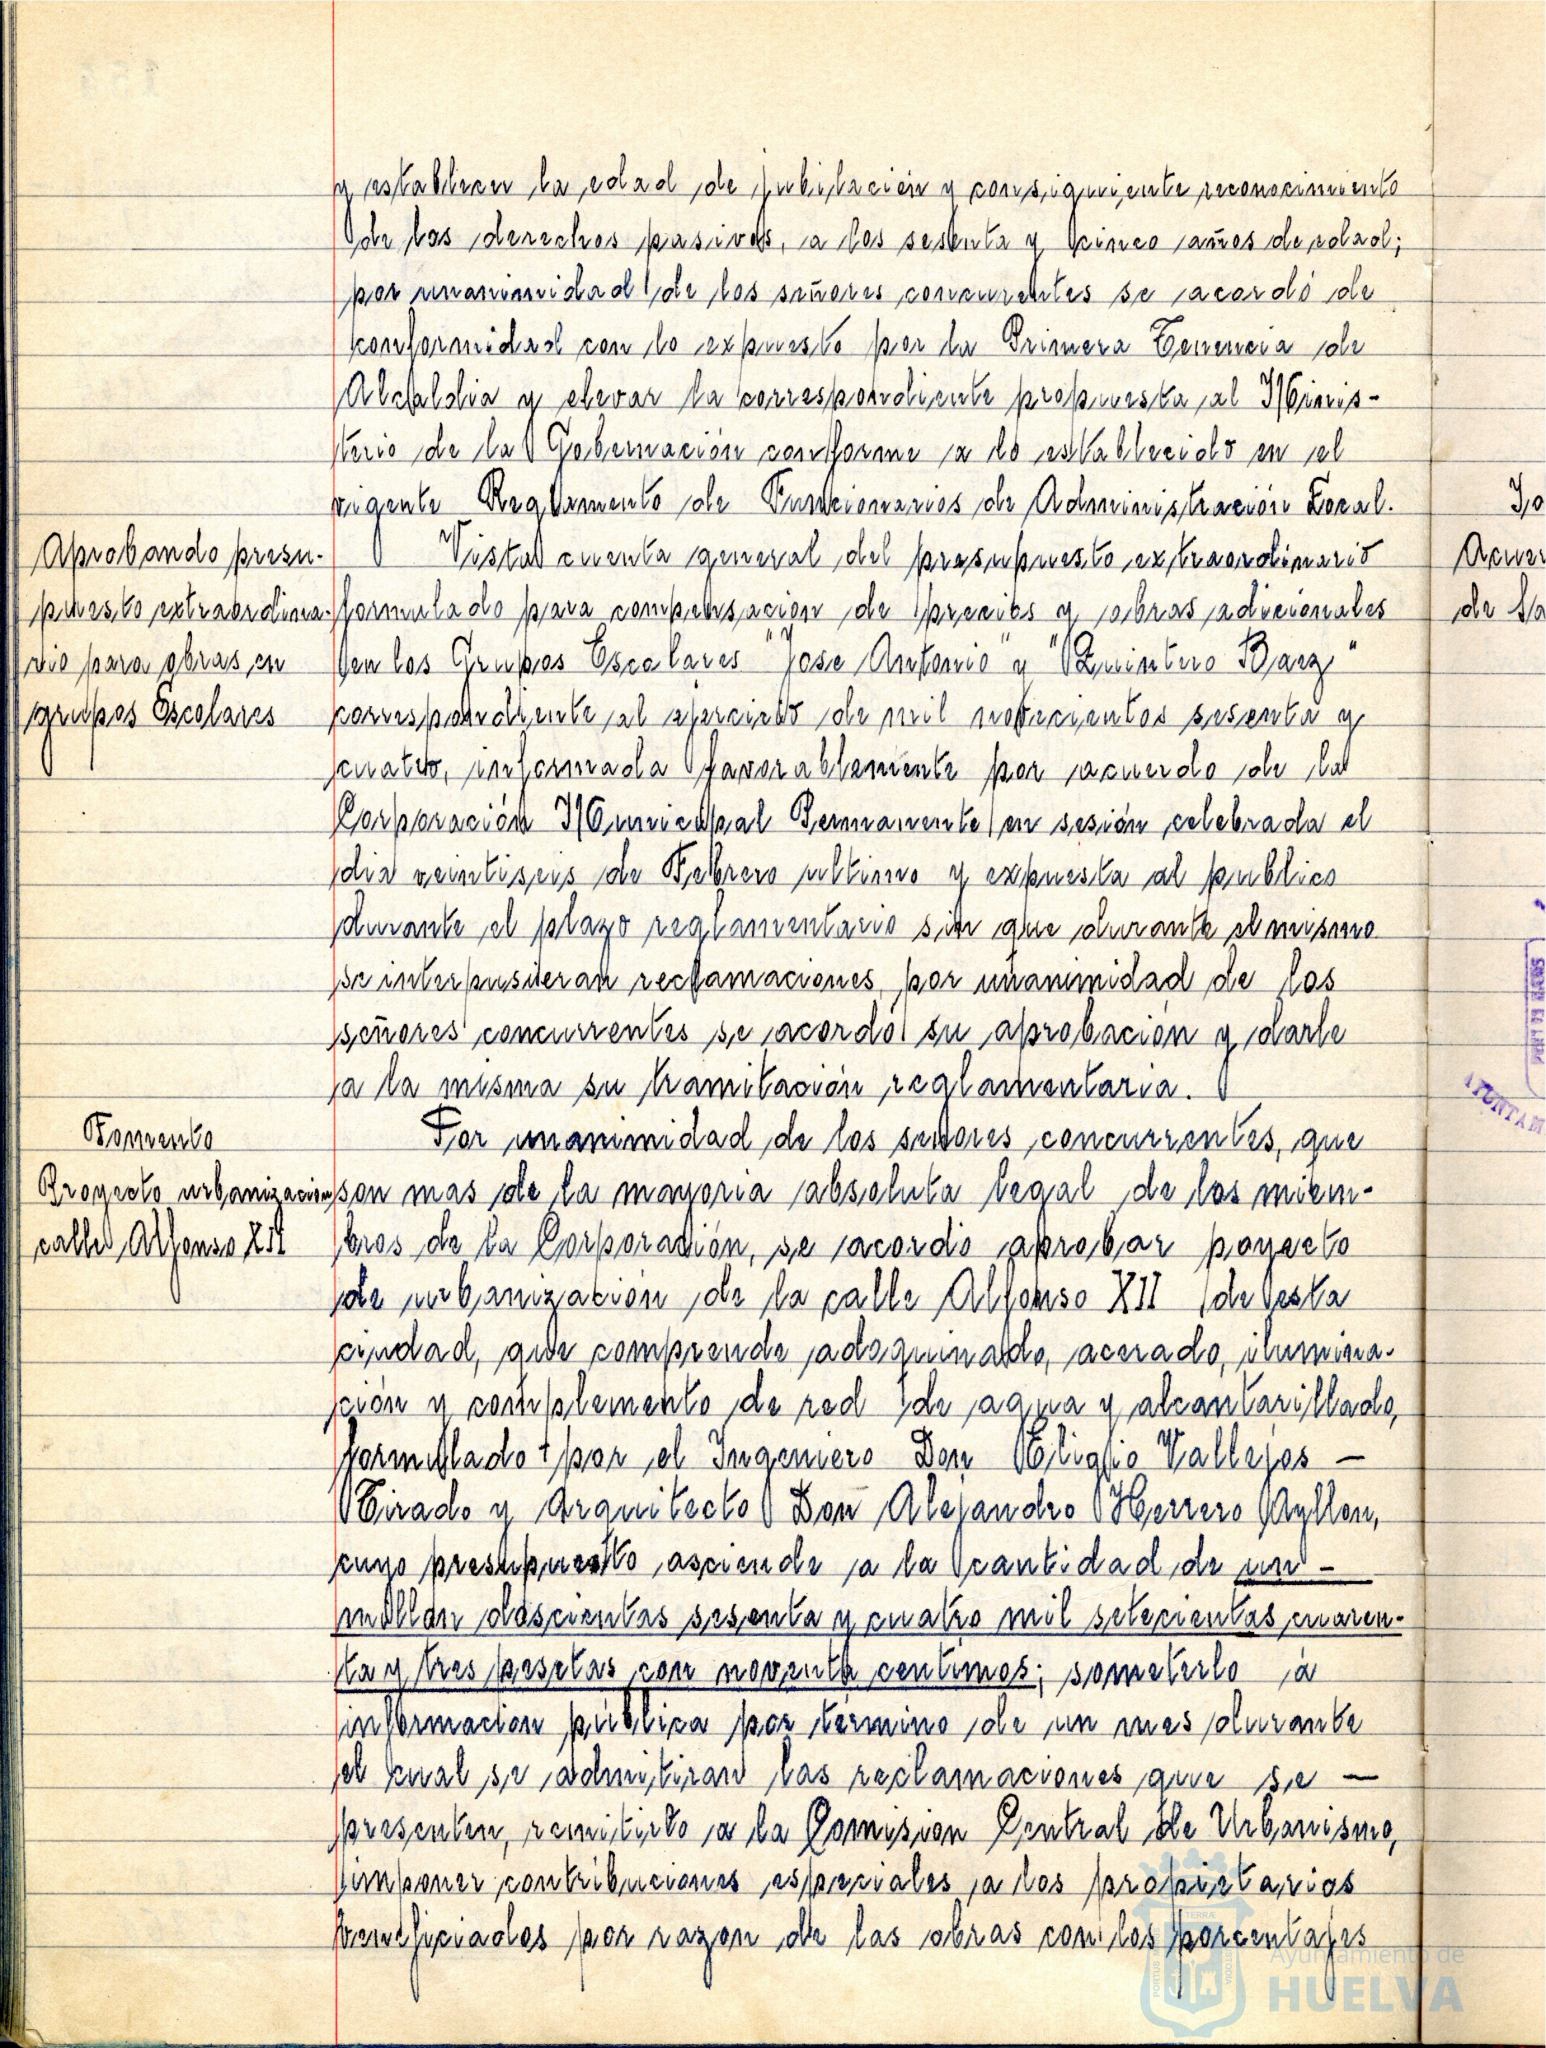 y establecen la edad de jubilación y consiguiente reconocimiento
de los derechos pasivos, a los sesenta y cinco años de edad;
por unanimidad de los señores concurentes se acordó de
conformidad con lo expuesto por la Primera Tenencia de
Alcaldia y elevar la correspondiente propuesta al Minis-
terio de la Gobernación conforme a lo establecido en el
vigente Reglamento de Funcionarios de Administración Local.
Aprobando presu-
puesto extraordina-
rio para obras en
grupos Escolares
Vista cuenta general del presupuesto extraordinario
formulado para compensacion de precios y obras adicionales
en los Grupos Escolares "Jose Antonio" y "Quintero Baez"
correspondiente al ejercicio de mil novecientos sesenta y
cuatro, informada favorablemente por acuerdo de la
Corporación Municipal Permanente en sesión celebrada el
dia veintiseis de Febrero ultimo y expuesta al publico
durante el plazo reglamentario sin que durante el mismo
se interpusieran reclamaciones, por unanimidad de los
señores concurrentes se acordó su aprobacion y darle
a la misma su tramitación reglamentaria.
Fomento
Proyecto urbanizacion
calle Alfonso XII
Por unanimidad de los señores concurrentes, que
son mas de la mayoria absoluta legal de los miem-
bros de la Corporación, se acordó aprobar poyecto
de urbanización de la calle Alfonso XII de esta
ciudad, que comprende adoquinado, acerado, ilumina-
ción y complemento de red de agua y alcantarillado,
formulado por el Ingeniero Don Eligio Vallejos —
Tirado y Arquitecto Don Alejandro Herrero Ayllon,
cuyo presupuesto asciende a la cantidad de un —
millon doscientas sesenta y cuatro mil setecientas cuaren-
ta y tres pesetas con noventa centimos; someterlo a
información pública por término de un mes durante
el cual se admitiran las reclamaciones que se —
presenten, remitirlo a la Comision Central de Urbanismo,
imponer contribuciones especiales a los propietarios
beneficiados por razon de las obras con los porcentajes
Acuer
de
AYUNTAM
Ayuntamiento de
HUELVA